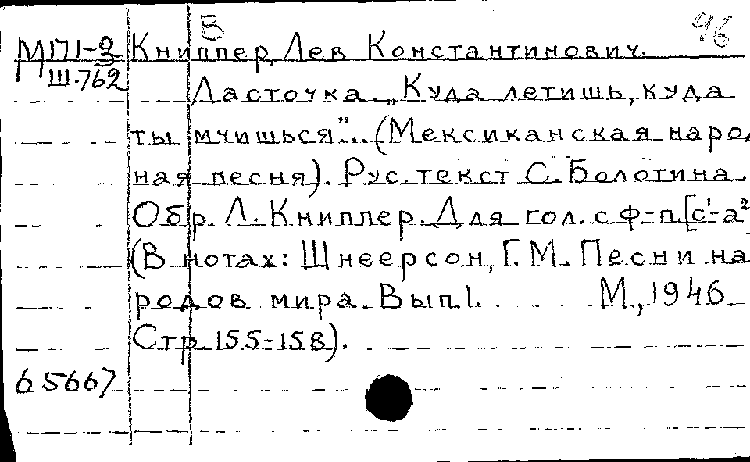 В 96
М171-2 Книппер, Лев Константинович.
III.762
Ласточка „Куда летишь, куда
ты мчишься"... (Мексиканская народ
ная песня). Рус. текст С. Болотина.
Обр. Л. Книппер. Для гол. с ф-п. [c¹-a²
(В нотах: Шнеерсон, Г. М. Песни на
родов мира. Вып. 1. М., 1946
Стр. 155-158).
65667